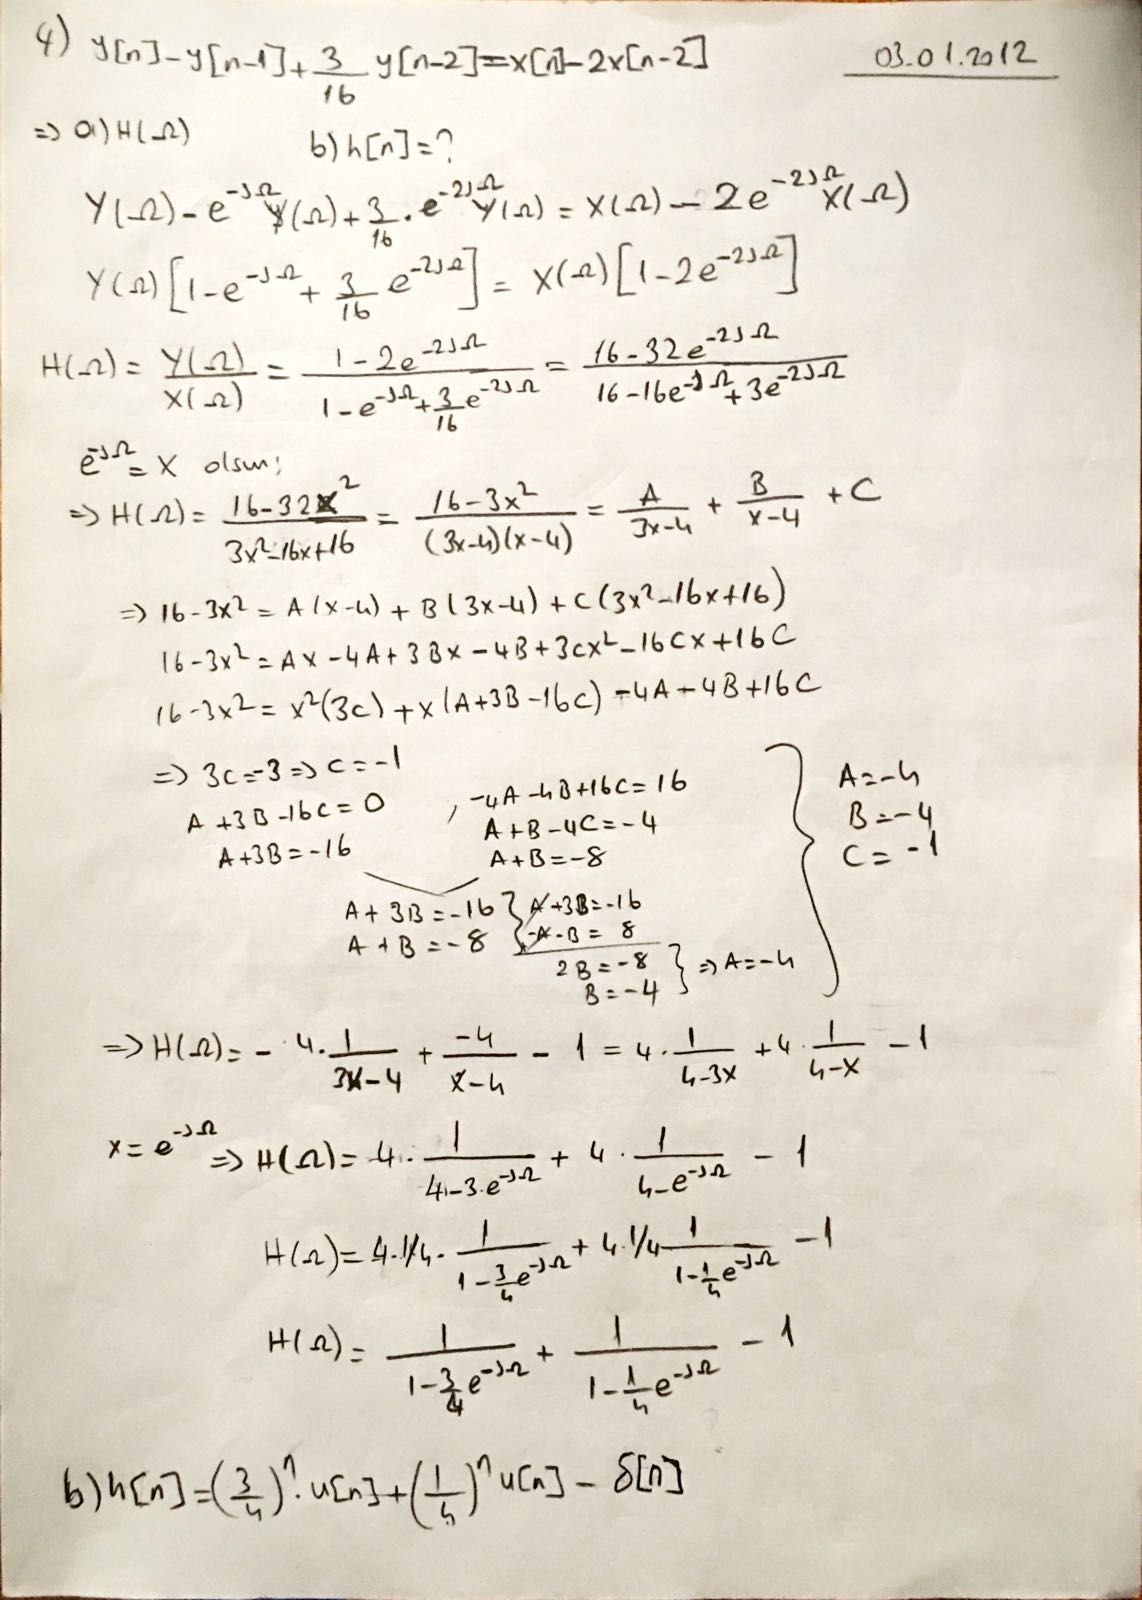 4) y[n]-y[n-1]+3/16 y[n-2]=x[n]-2x[n-2]
03.01.2012
=> a) H(Ω) b) h[n]=?
Y(Ω)-e^-jΩ Y(Ω)+3/16.e^-2jΩ Y(Ω) = X(Ω)-2e^-2jΩ X(Ω)
Y(Ω)[1-e^-jΩ+3/16 e^-2jΩ] = X(Ω)[1-2e^-2jΩ]
H(Ω)= Y(Ω)/X(Ω) = (1-2e^-2jΩ)/(1-e^-jΩ+3/16 e^-2jΩ) = (16-32e^-2jΩ)/(16-16e^-jΩ+3e^-2jΩ)
e^-jΩ = x olsun;
=> H(Ω)= (16-32x^2)/(3x^2-16x+16) = (16-3x^2)/((3x-4)(x-4)) = A/(3x-4) + B/(x-4) + C
=> 16-3x^2 = A(x-4) + B(3x-4) + C(3x^2-16x+16)
16-3x^2 = Ax-4A+3Bx-4B+3cx^2-16Cx+16C
16-3x^2 = x^2(3c)+x(A+3B-16C)-4A-4B+16C
=> 3c=-3 => C=-1
A+3B-16C=0 , -4A-4B+16C=16
A+3B=-16 A+B-4C=-4
A+B=-8
A=-4
B=-4
C=-1
A+3B=-16 } A+3B=-16
A+B=-8 } -A-B=8
2B=-8 } => A=-4
B=-4
=> H(Ω)= -4.1/(3x-4) + -4/(x-4) - 1 = 4.1/(4-3x) + 4.1/(4-x) - 1
x=e^-jΩ => H(Ω)= 4.1/(4-3.e^-jΩ) + 4.1/(4-e^-jΩ) - 1
H(Ω)=4.1/4.1/(1-3/4 e^-jΩ) + 4.1/4 1/(1-1/4 e^-jΩ) - 1
H(Ω)= 1/(1-3/4 e^-jΩ) + 1/(1-1/4 e^-jΩ) - 1
b) h[n]=(3/4)^n.u[n]+(1/4)^n u[n]-δ[n]